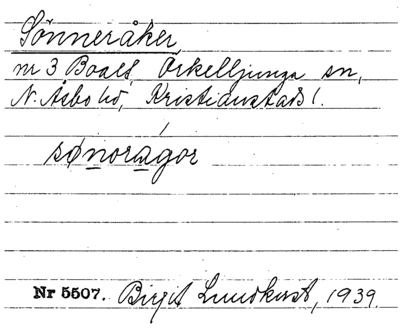 Sönneråker
nr 3 Boalt, Örkelljunga sn,
N. Åsbo hd, Kristianstads l.
sønoragor
Nr 5507. Birgit Lundkvist, 1939